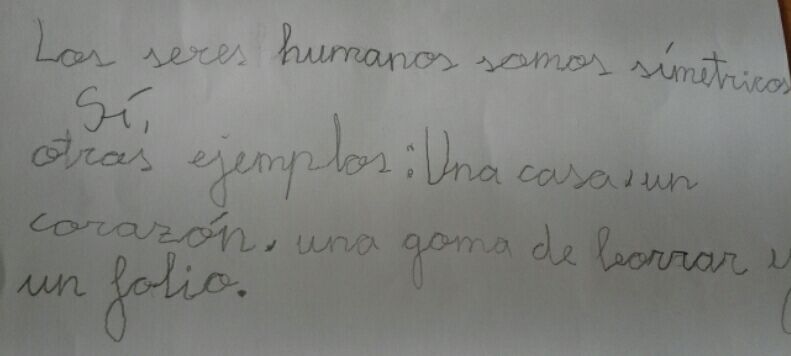 Los seres humanos somos símetricos
Sí,
otras ejemplos: Una casa, un
corazón, una goma de borrar y
un folio.